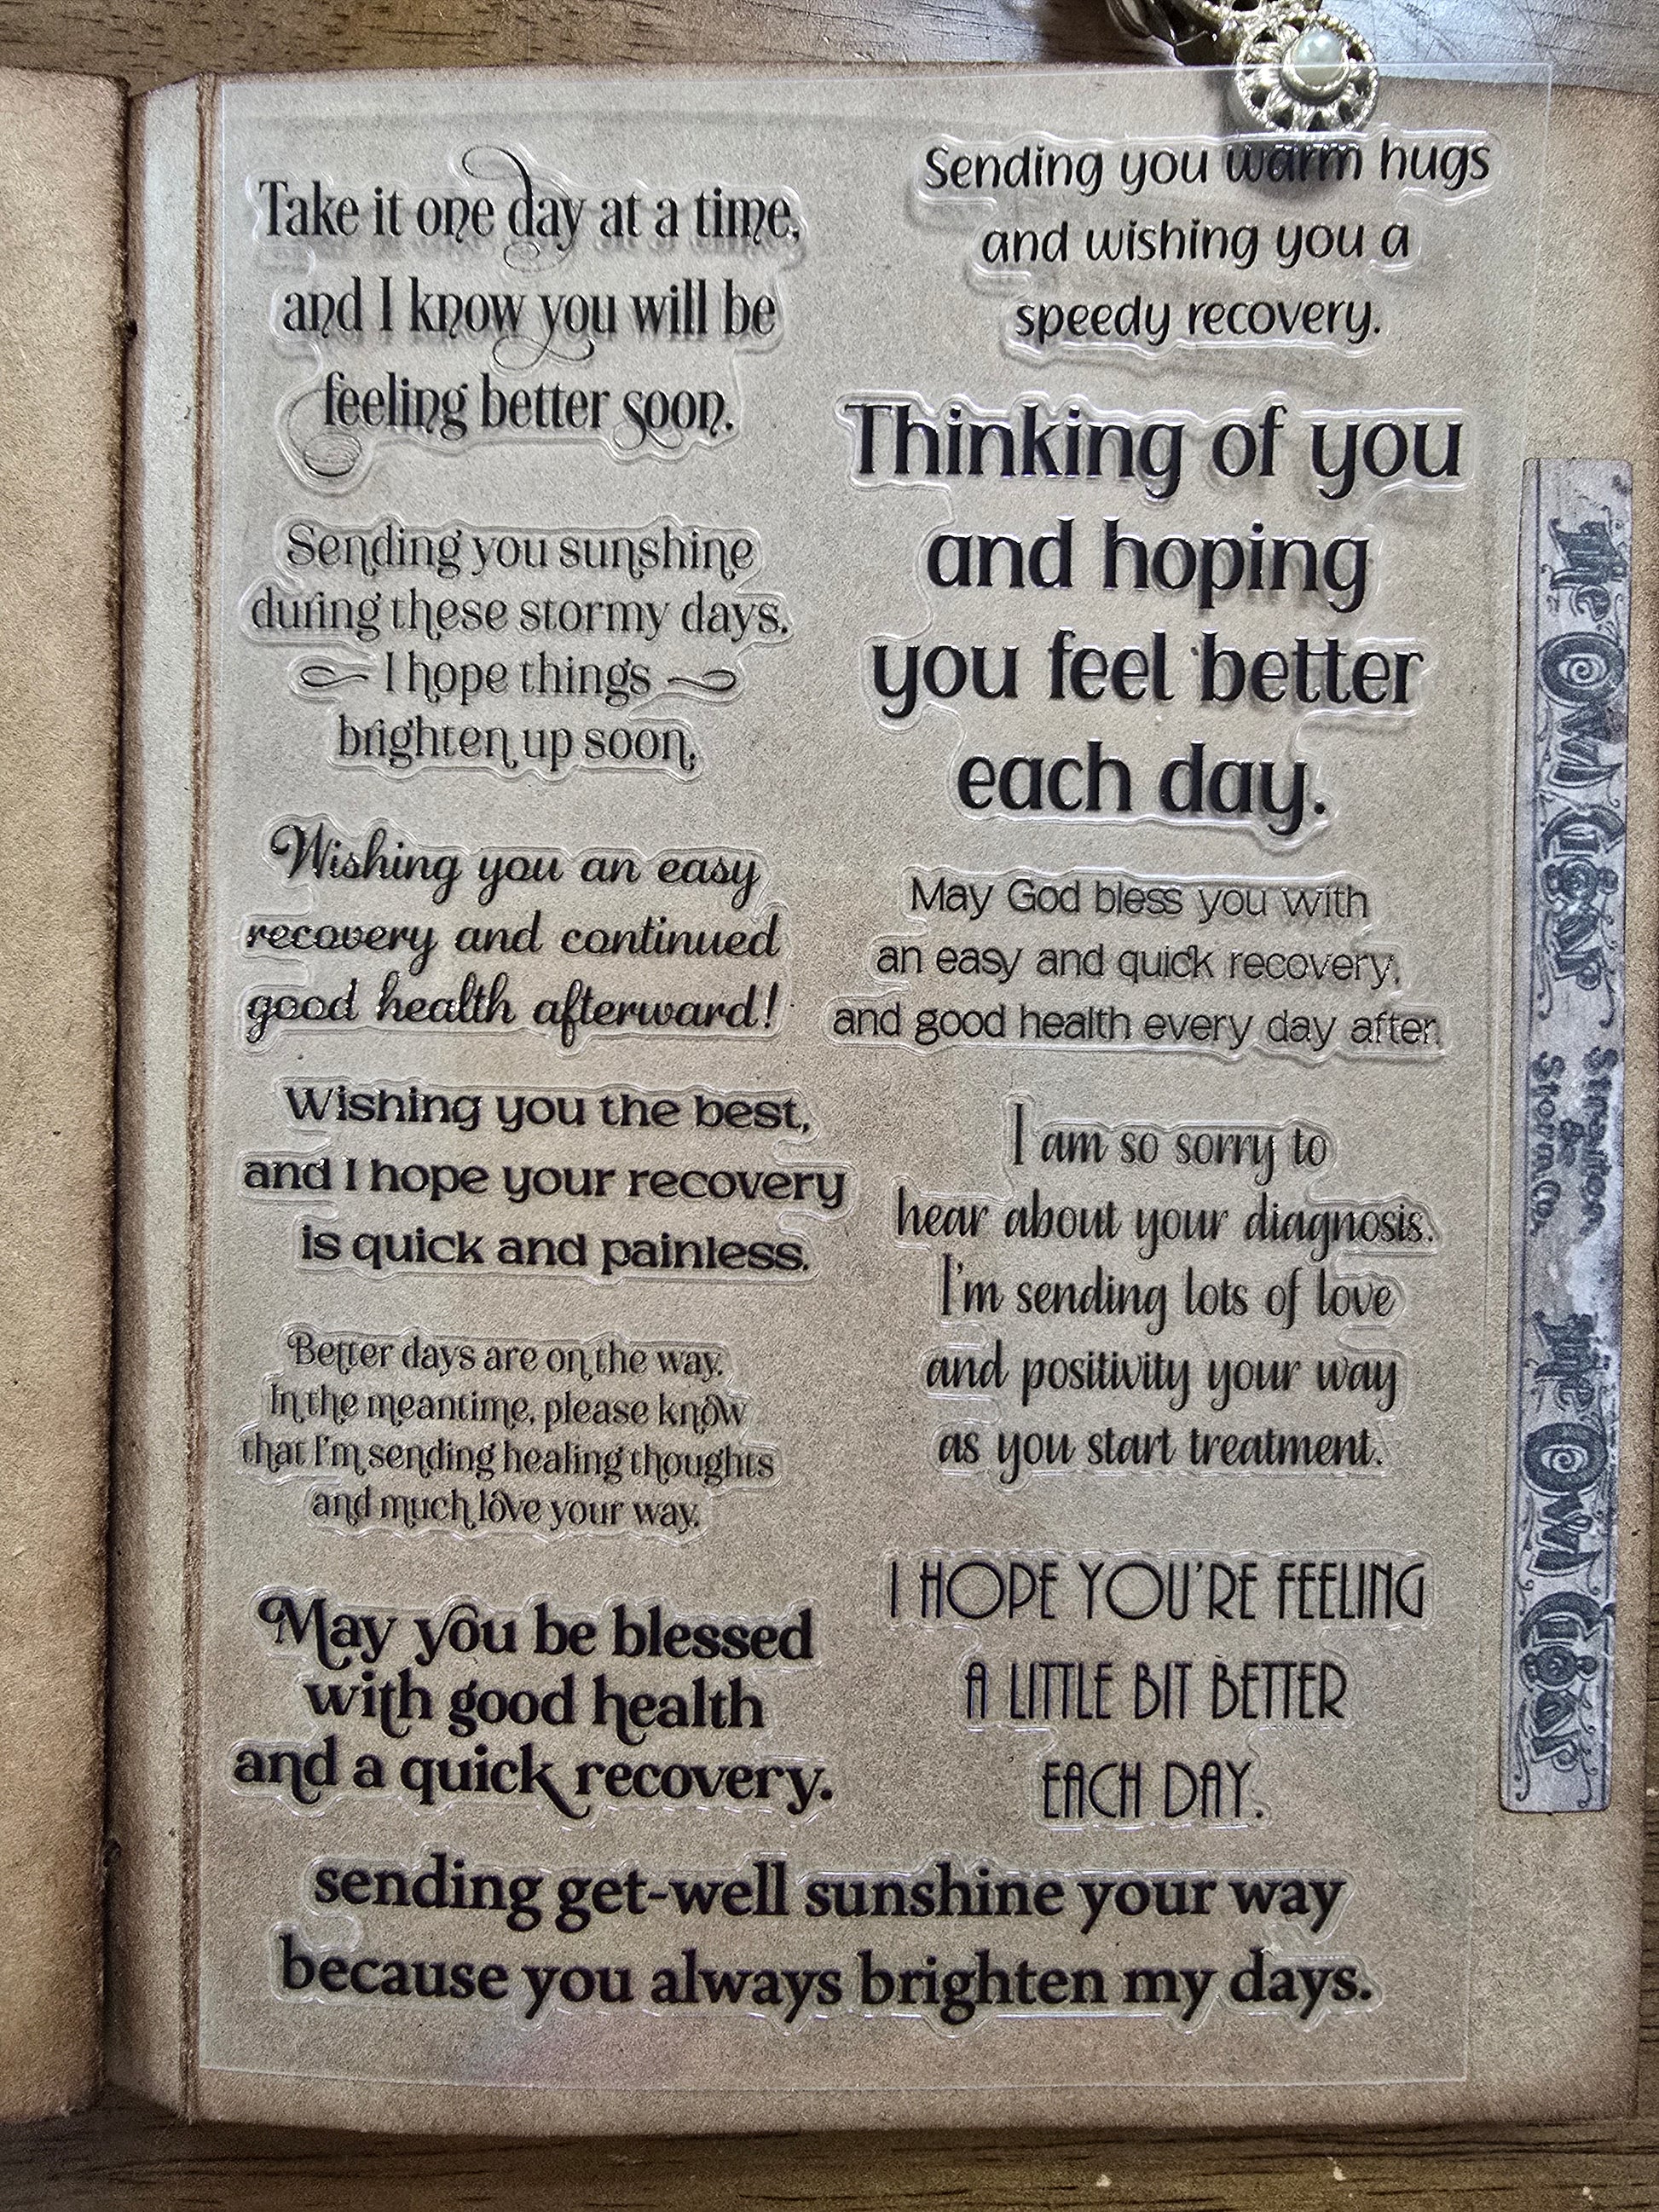 Take it one day at a time,
and I know you will be
feeling better soon.
Sending you sunshine
during these stormy days.
I hope things
brighten up soon.
Wishing you an easy
recovery and continued
good health afterward!
Wishing you the best,
and I hope your recovery
is quick and painless.
Better days are on the way.
In the meantime, please know
that I'm sending healing thoughts
and much love your way.
May you be blessed
with good health
and a quick recovery.
Sending you warm hugs
and wishing you a
speedy recovery.
Thinking of you
and hoping
you feel better
each day.
May God bless you with
an easy and quick recovery,
and good health every day after.
I am so sorry to
hear about your diagnosis.
I'm sending lots of love
and positivity your way
as you start treatment.
I HOPE YOU'RE FEELING
A LITTLE BIT BETTER
EACH DAY.
sending get-well sunshine your way
because you always brighten my days.
The Owl Cigar
&
Storm.Co.
The Owl Cigar